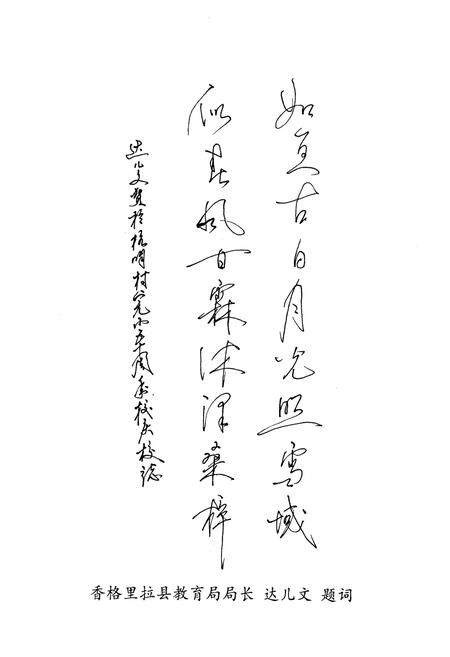 如亘古日月光照雪域
似春风甘霖沐泽桑梓
达儿文贺於杭明村完小五十周年校庆校誌
香格里拉县教育局局长 达儿文 题词